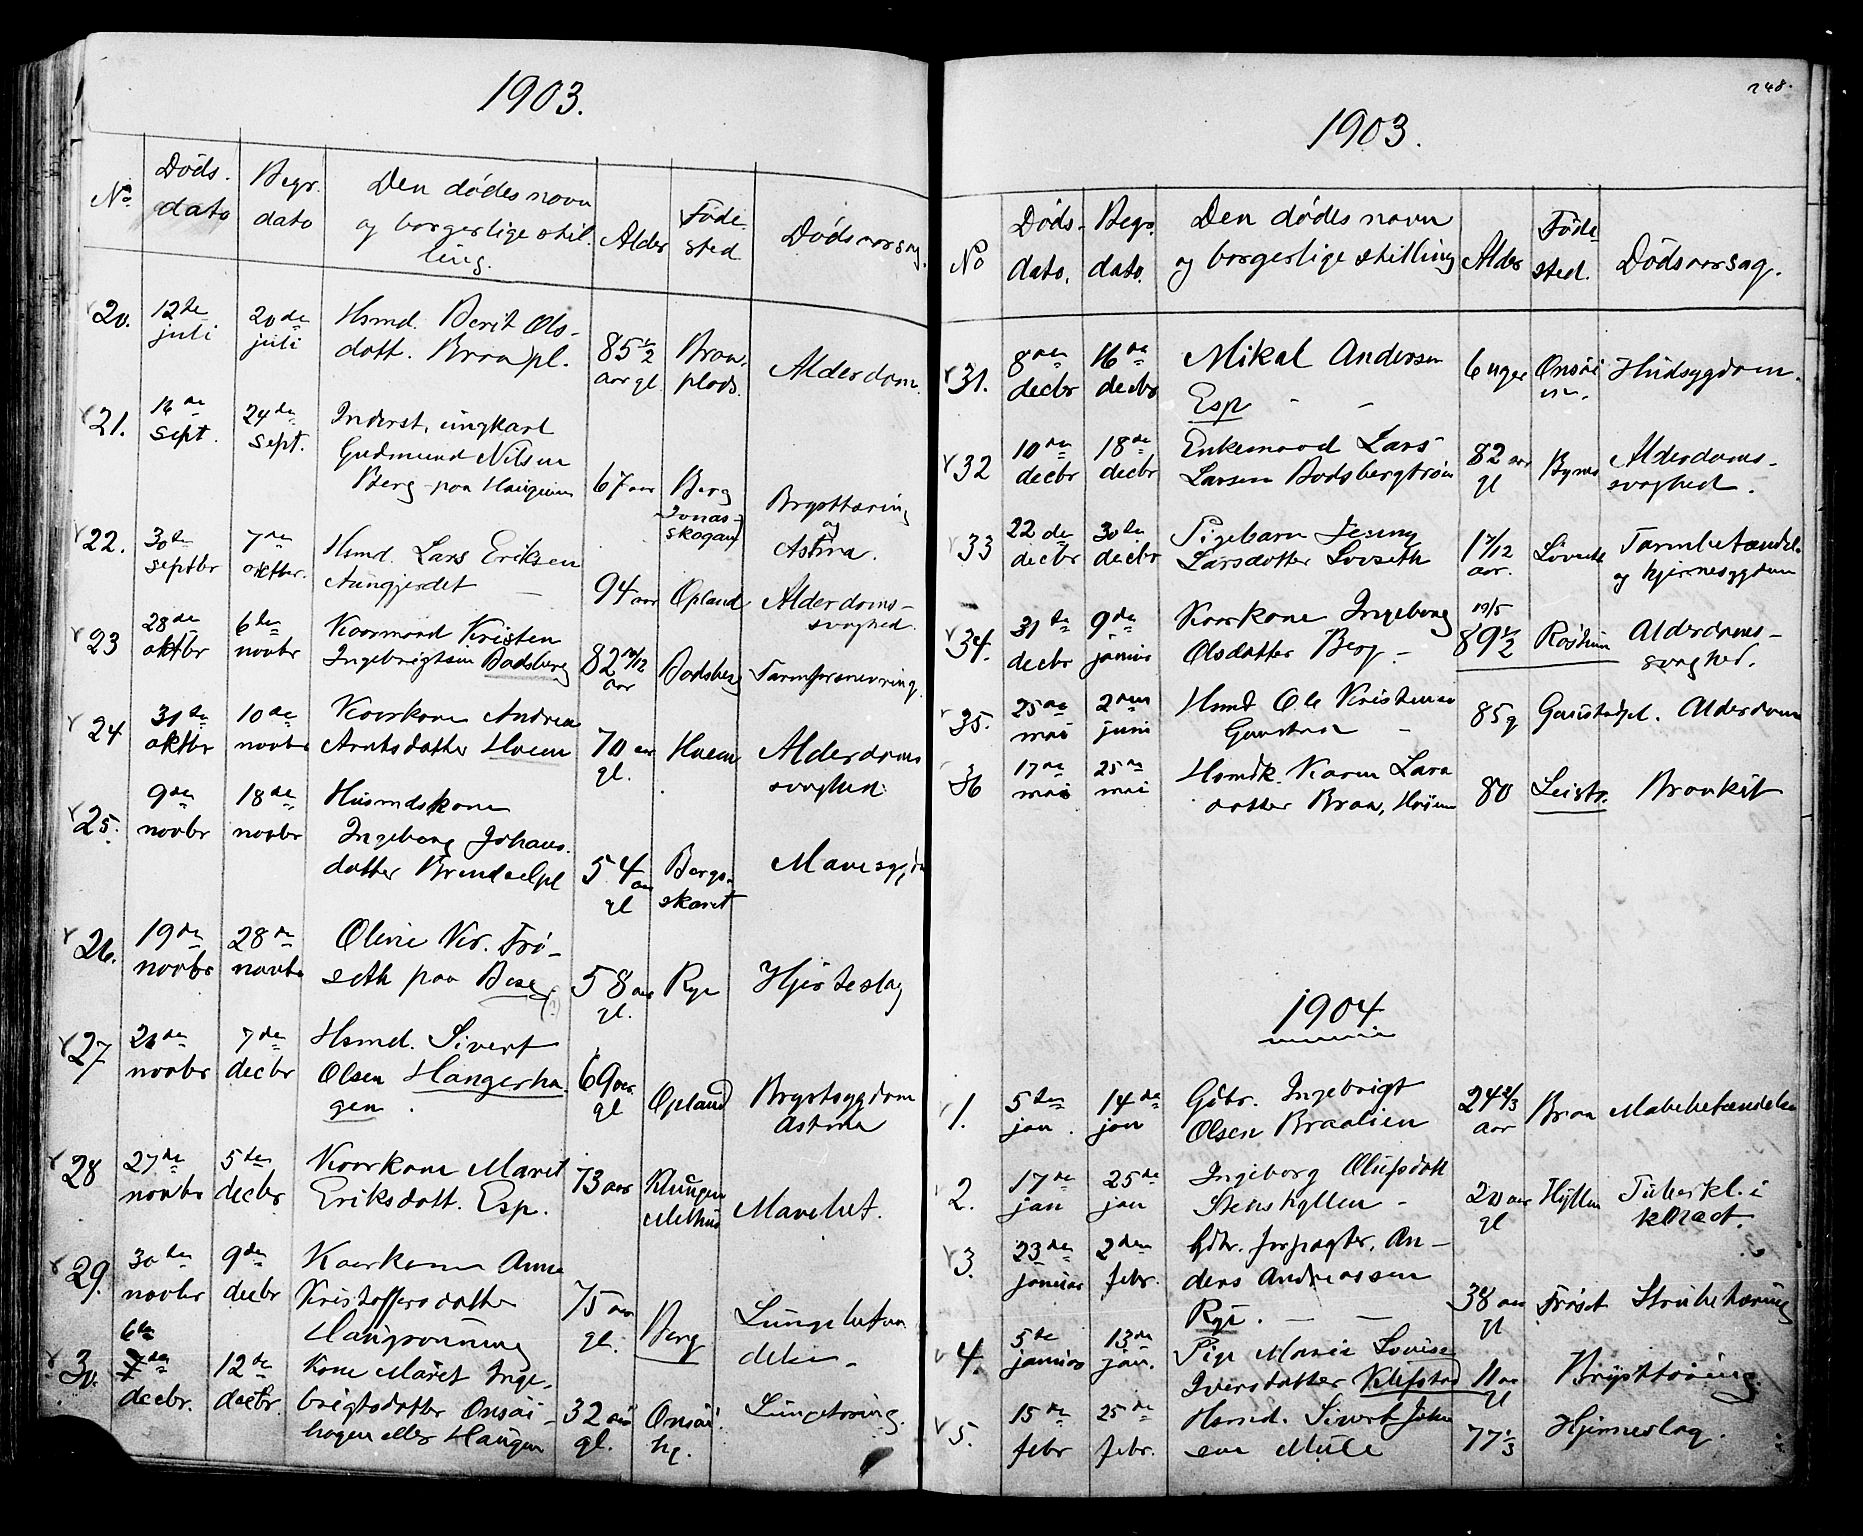 1903.
No. Døds. dato Begr. dato Den dødes navn og borgerlige stilling. Alder Føde sted Dødsaarsag.
20. 12te juli 20de juli Hsmd. Berit Ols-
datt. Braapl. 85 1/2 aar gl. Braa plads. Alderdom
21. 16de sept. 24de sept. Inderst, ungkarl
Gudmund Nilsen
Berg paa Haugen 67 aar Berg Jonas-skogan Brysttæring og Astma.
22. 30te septbr 7de oktbr. Hsmd. Lars Eriksen
Aungjerdet 94 aar Opland Alderdoms-svaghed.
23 28de oktbr 6te novbr Kaarmand Kristen
Ingebrigtsen Dodsberg 82 10/12 aar Dodsberg
24 31te oktbr 10de novbr Kaarkone Andrea
Arntsdatter Hoem 70 aar gl. Alderdoms svaghed
25. 9de novbr 18de novbr Husmdskone
Ingeborg Johans.
datter 54 aar gl Bergs-skaret Mavesygd
26. 19de novbr 28de novbr Oline Kr. Frø-
seth paa Berg (?) 58 aar gl. Rye Hjerteslag
27 novbr 7de decbr Hsmd. Sivert
Olsen Haugerha
gen. 69 aar gl Opland Brystsygdom Astma
28 27de novbr 5de decbr Kaarkone Marit
Eriksdatt. Esp. 73 aar Klungen Melhus
29. 30te novbr 9de decbr Kaarkone Anne
Kristoffersdatter
75 aar gl. Berg Lungebetæn delse-
30. 6te decbr. 12te decbr. Kone Marit Inge-
brigtsdatter Onsøi-
hagen eller Haugen 32 aar gl. Onsøi hg.
248.
1903.
No Døds. dato. Begr. dato. Den dødes navn og borgerlige stilling Alder Føde-sted. Dødsaarsag.
31. 8de decbr 16de decbr Mikal Andersen
Esp - - 6 uger Hudsygdom.
32 10de decbr 18de decbr Enkemand Lars
Larsen 82 aar gl Bynes Alderdoms-svaghed.
33 22de decbr 30te decbr Pigebarn
Larsdatter Lovseth 1 7/12 aar. Tarmbetændel. og hjernesygdom
34. 31te decbr 9de januar Kaarkone Ingeborg
Olsdatter Berg - 89 1/2 Alderdoms-svaghed.
35. 25de mai 2den juni Hsmd Ole Kristensen
85 g Alderdom
36 17de mai 25de mai Hsmdk. Karen Lars
datter Braa, 80 Leistr. Bronkit
1904
1. 5te jan. 14de jan Gdbr. Ingebrigt
Olsen Braalien 24 2/3 aar Braa
2. 17de jan 25de jan Ingeborg Olufsdatt
20 aar gl Hyllen Tuberkl. i
3. 23de januar 2den febr. Gdbr. forpagter, An-
ders Andreassen
Rye. - - 38 aar gl Frøset Strubetæring
4. 5te januar 13de jan. Pige Marie Lovise
Iversdatter Klefstad 11 aar gl Brysttæring.
5. 15de febr 25de febr. Hsmd. Sivert John
sen Mule 77 1/3 Hjerneslag.